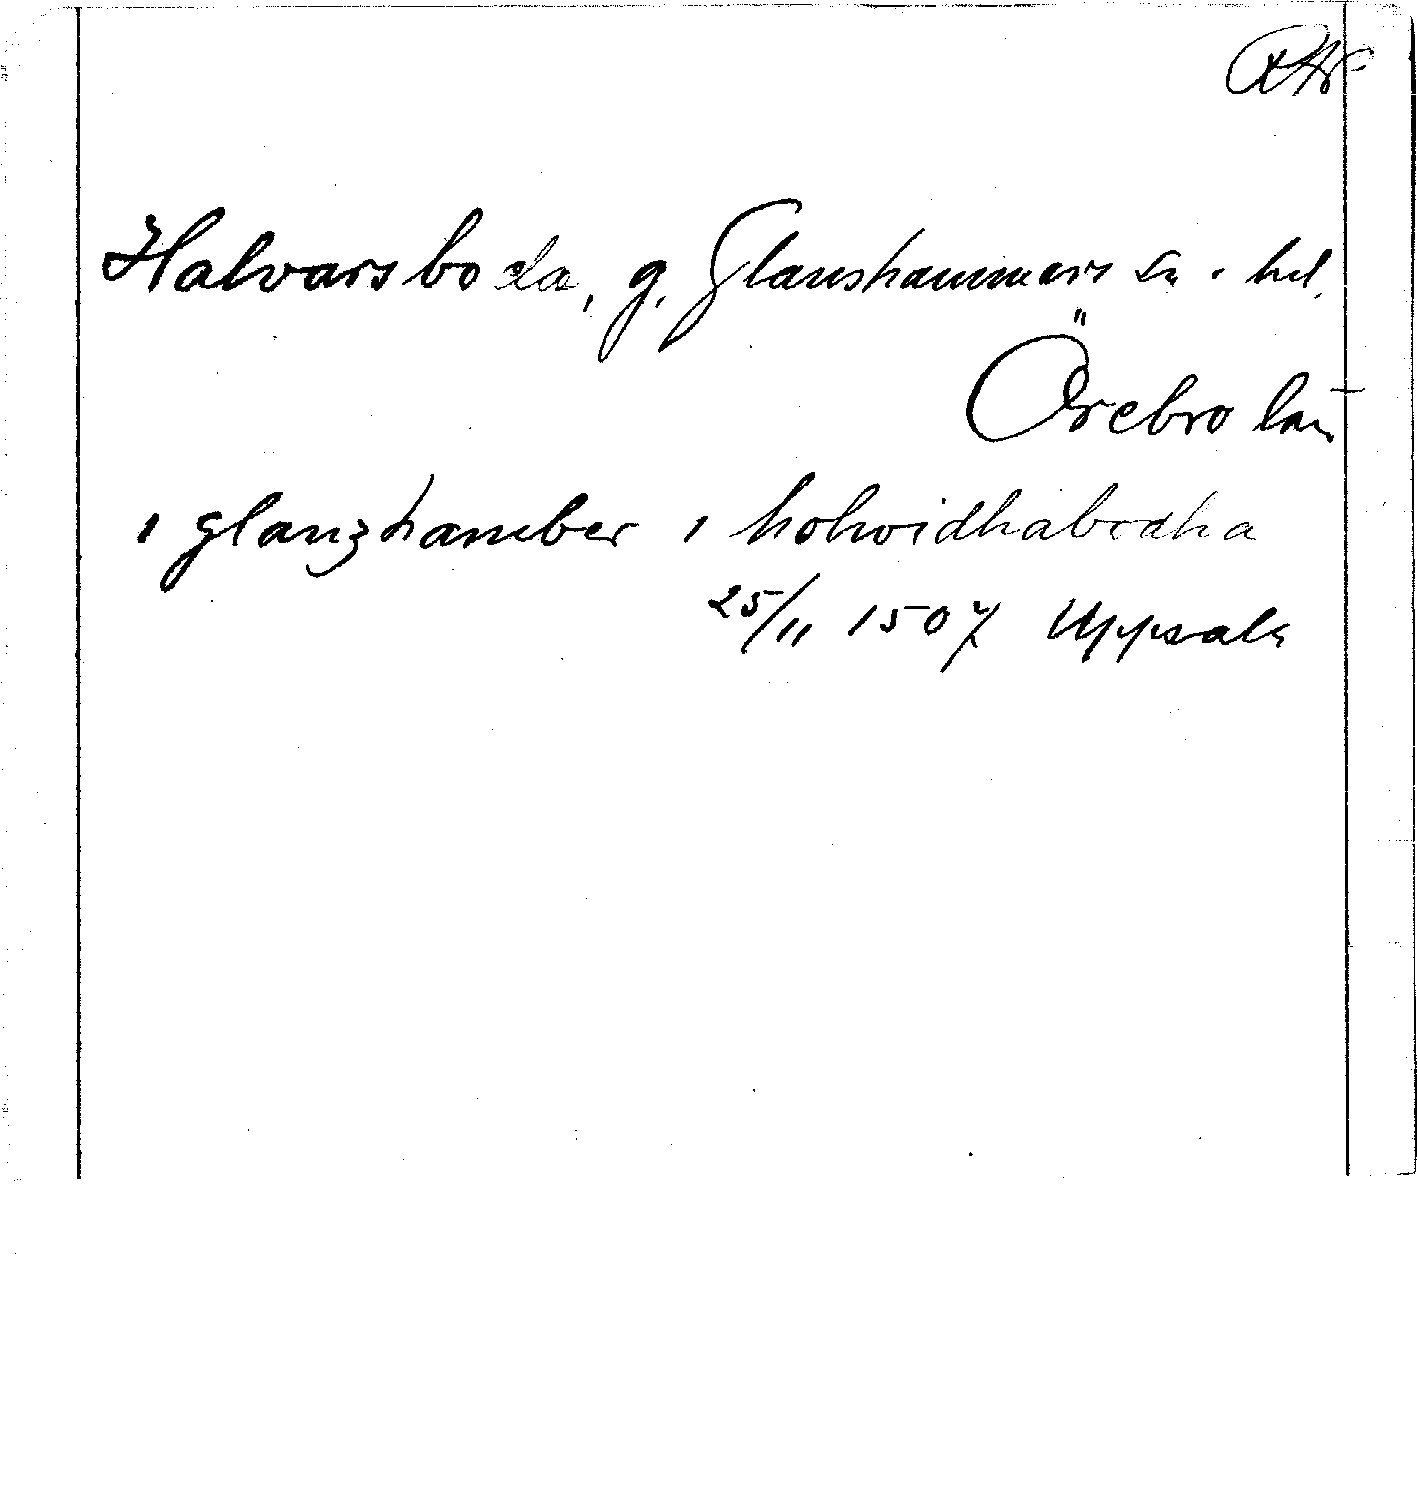 RAp
Halvarsboda, g. Glanshammars sn o. hd.
Örebro län
i glanzhamber i holwidhabodha
25/11 1507 Uppsala